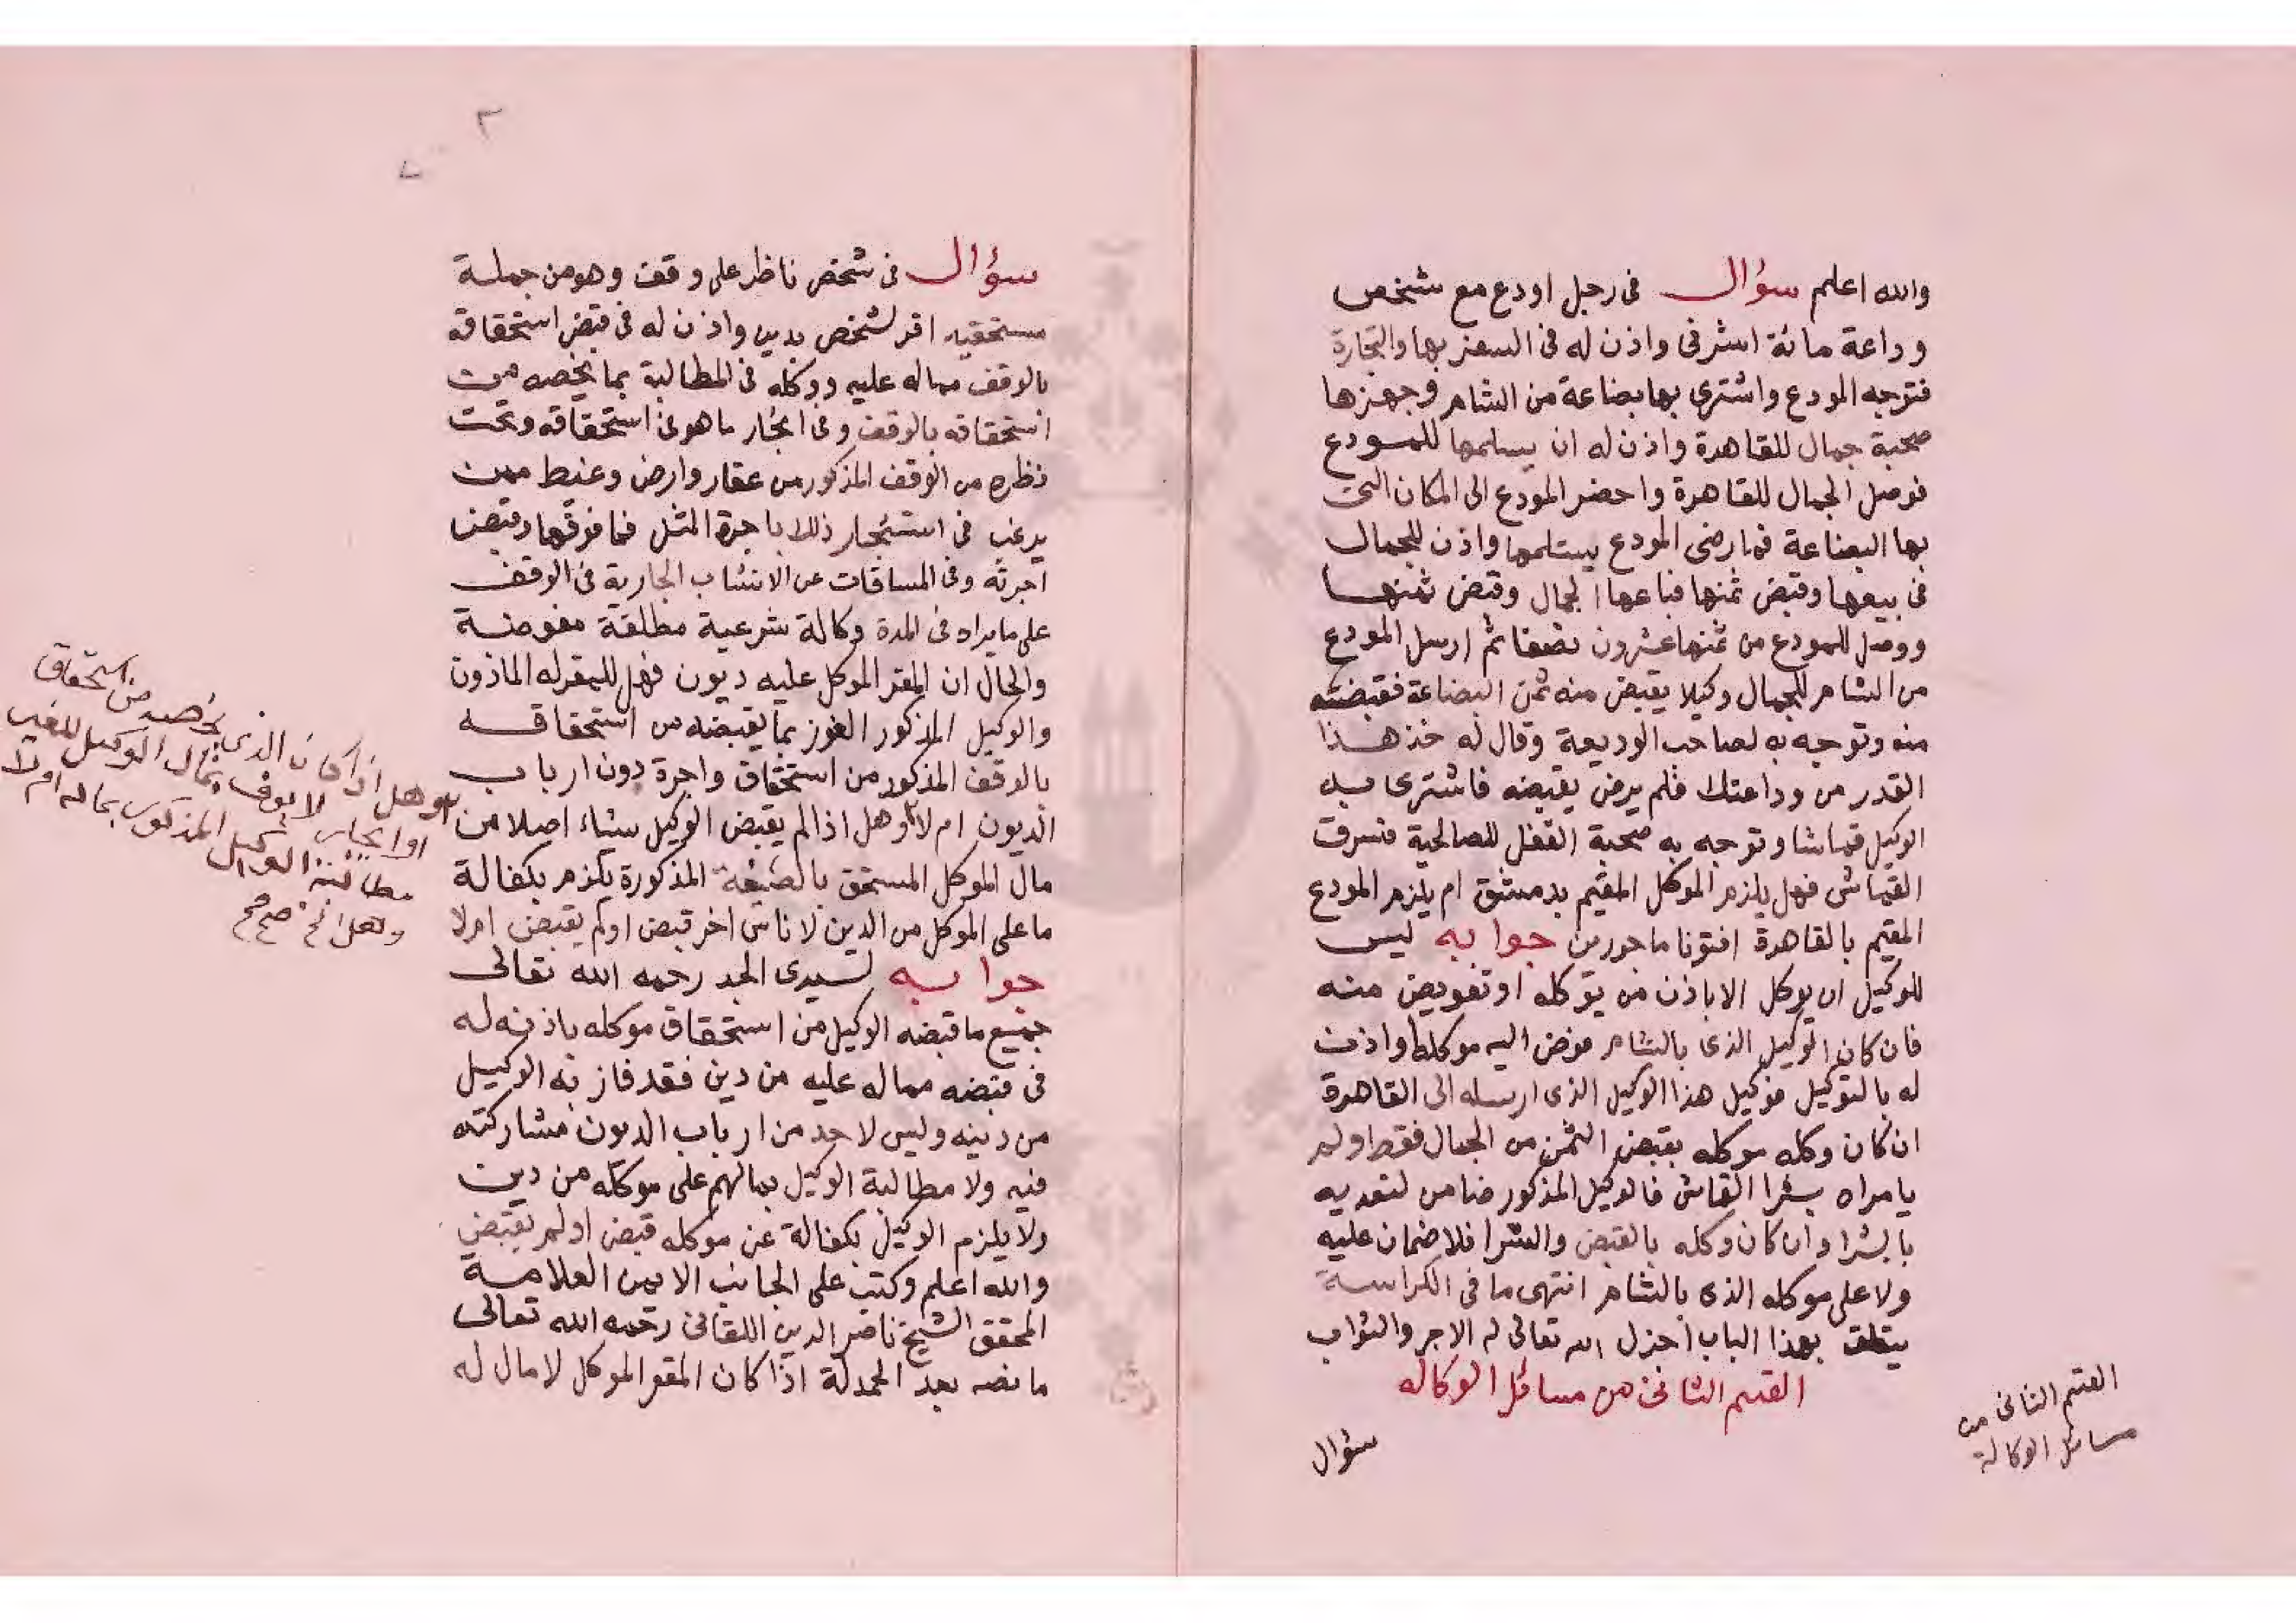 والله اعلم سؤال فى رجل اودع مع شخص
وداعة مائة اشرفى واذن له فى السفر بها والتجارة
فتوجه المودع واشترى بها بضاعة من الشام وجهزها
صحبة جمال للقاهرة واذن له ان يسلمها للمودع
فوصل الجمال للقاهرة واحضر المودع الى المكان التى
بها البضاعة فما رضى المودع يستلمها واذن للجمال
فى بيعها وقبض ثمنها فباعها الجمال وقبض ثمنها
ووصل للمودع من ثمنها عشرون نصفا ثم ارسل المودع
من الشام للجمال وكيلا يقبض منه ثمن البضاعة فقبضته
منه وتوجه به لصاحب الوديعة وقال له خذ هذا
القدر من وداعتك فلم يرض يقبضه فاشترى به
الوكيل قماشا وتوجه به صحبة القفل للصالحية فسرقت
القماش فهل يلزم الموكل المقيم بدمشق ام يلزم المودع
المقيم بالقاهرة افتونا ماجورين جوابه ليس
للوكيل ان يوكل الا باذن من يوكله او تفويض منه
فان كان الوكيل الذى بالشام مفوض اليه موكله واذن
له بالتوكيل فوكيل هذا الوكيل الذى ارسله الى القاهرة
ان كان وكله موكله بقبض الثمن من الجمال فقط ولم
يامراه بشرا القماش فالوكيل المذكور ضامن لتعديه
بالشرا وان كان وكله بالقبض والشرا فلا ضمان عليه
ولا على موكله الذى بالشام انتهى ما فى الكراسة
يتعلق بهذا الباب اجزل الله تعالى له الاجر والثواب
القسم الثانى من مسائل الوكاله
القسم الثانى من
مسائل الوكالة
سؤال
٢
سؤال فى شخص ناظر على وقف وهو من جملة
مستحقيه اقر لشخص بدين واذن له فى قبض استحقاقه
بالوقف مماله عليه ووكله فى المطالبة بما يخصه من
استحقاقه بالوقف وفى ايجار ما هو فى استحقاقه وتحت
نظره من الوقف المذكور من عقار وارض وغيط ممن
يرغب فى استئجار ذلك باجرة المثل فما فوقها وقبض
اجرته وفى المساقات عن الانشاب الجارية فى الوقف
على ما يراه فى المدة وكالة شرعية مطلقة مفوضة
والحال ان المقر الموكل عليه ديون فهل للمقر له الماذون
والوكيل المذكور الفوز بما يقبضه من استحقاقه
بالوقف المذكور من استحقاق واجرة دون ارباب
الديون ام لا وهل اذا لم يقبض الوكيل شياء اصلا من
مال الموكل المستحق بالصيغة المذكورة يلزم بكفالة
ما على الموكل من الدين لاناس اخر قبض او لم يقبض اولا
جوابه لسيدى الجد رحمه الله تعالى
جميع ما قبضه الوكيل من استحقاق موكله باذنه له
فى قبضه مماله عليه من دين فقد فاز به الوكيل
من دينه وليس لاحد من ارباب الديون مشاركته
فيه ولا مطالبة الوكيل بمالهم على موكله من دين
ولا يلزم الوكيل بكفالة عن موكله قبض او لم يقبض
والله اعلم وكتب على الجانب الايمن العلامة
المحقق الشيخ ناصر الدين اللقانى رحمه الله تعالى
ما نصه بعد الحمدلة اذا كان المقر الموكل لا مال له
وهل اذا كان الذى يخصه من استحقاق
او ايجار لا يوف بمال الوكيل
مطالبته الوكيل المذكور بماله ام لا
وهل الخ صح صح